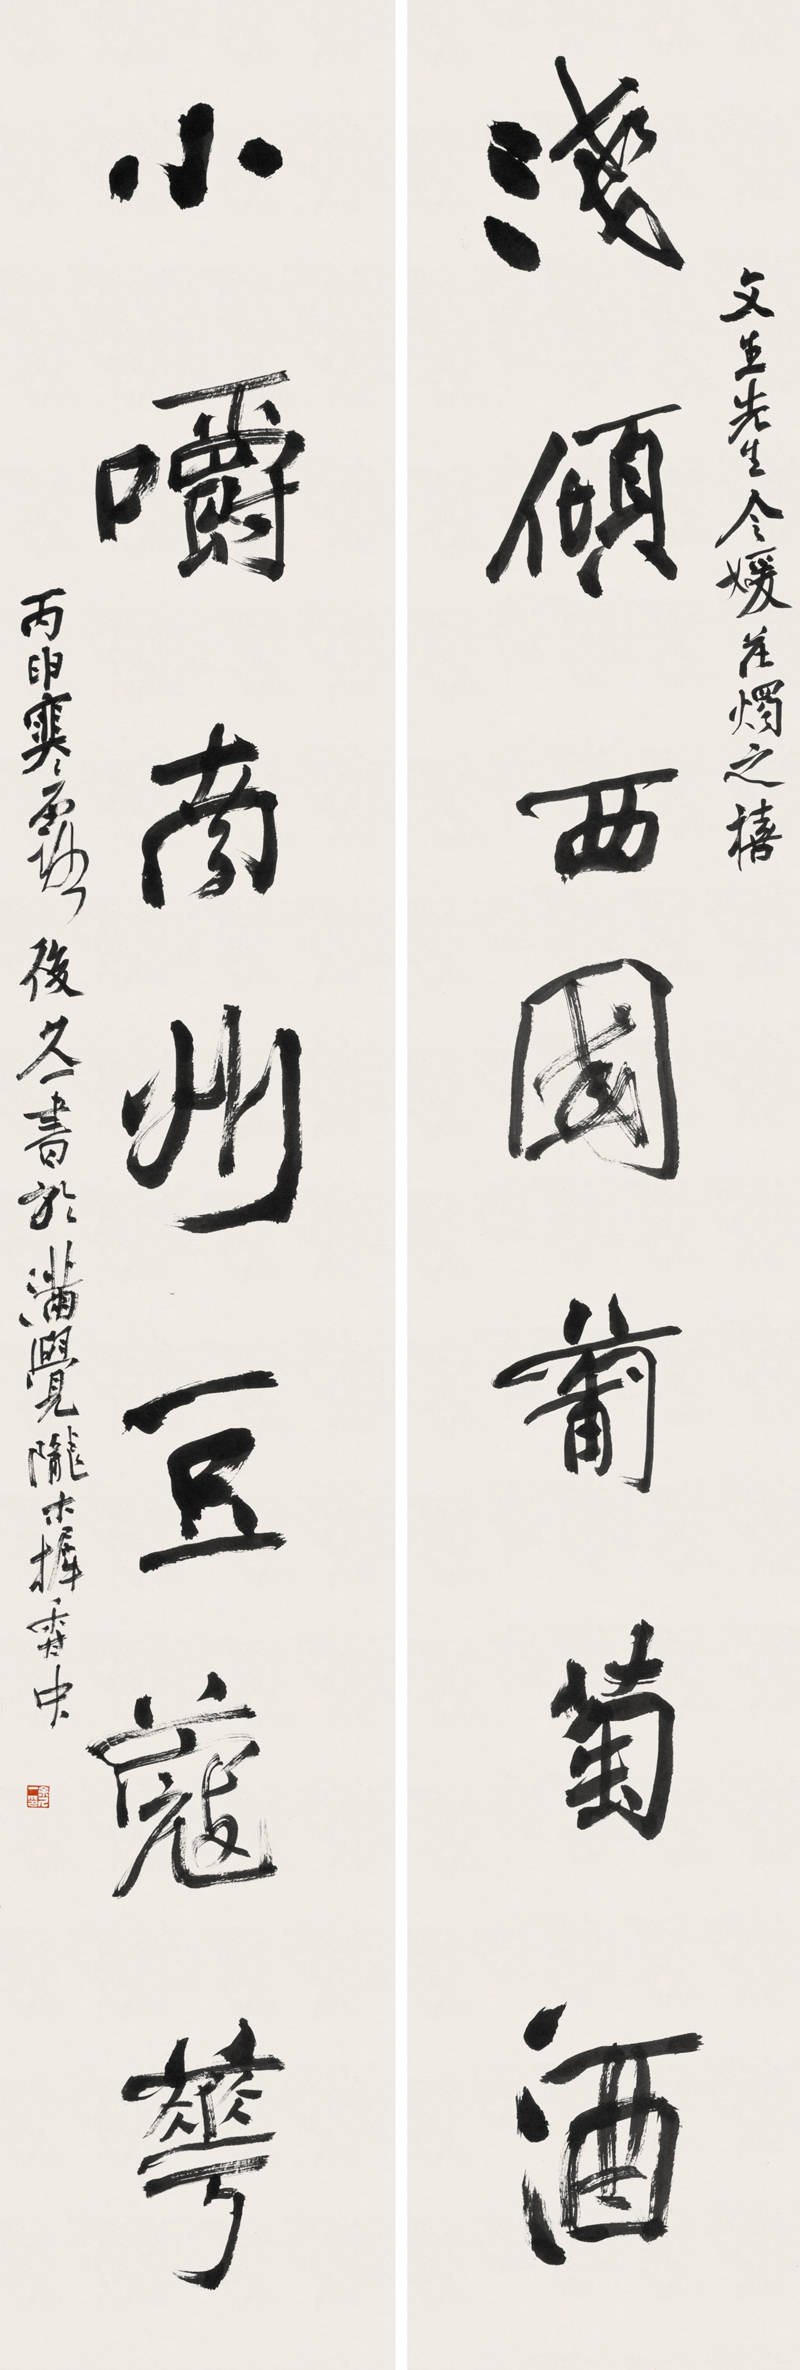 文生先生令媛花燭之禧
淺傾西國葡萄酒
小嚼南州豆蔻華
丙申寒露後 書於滿覺隴木樨香中